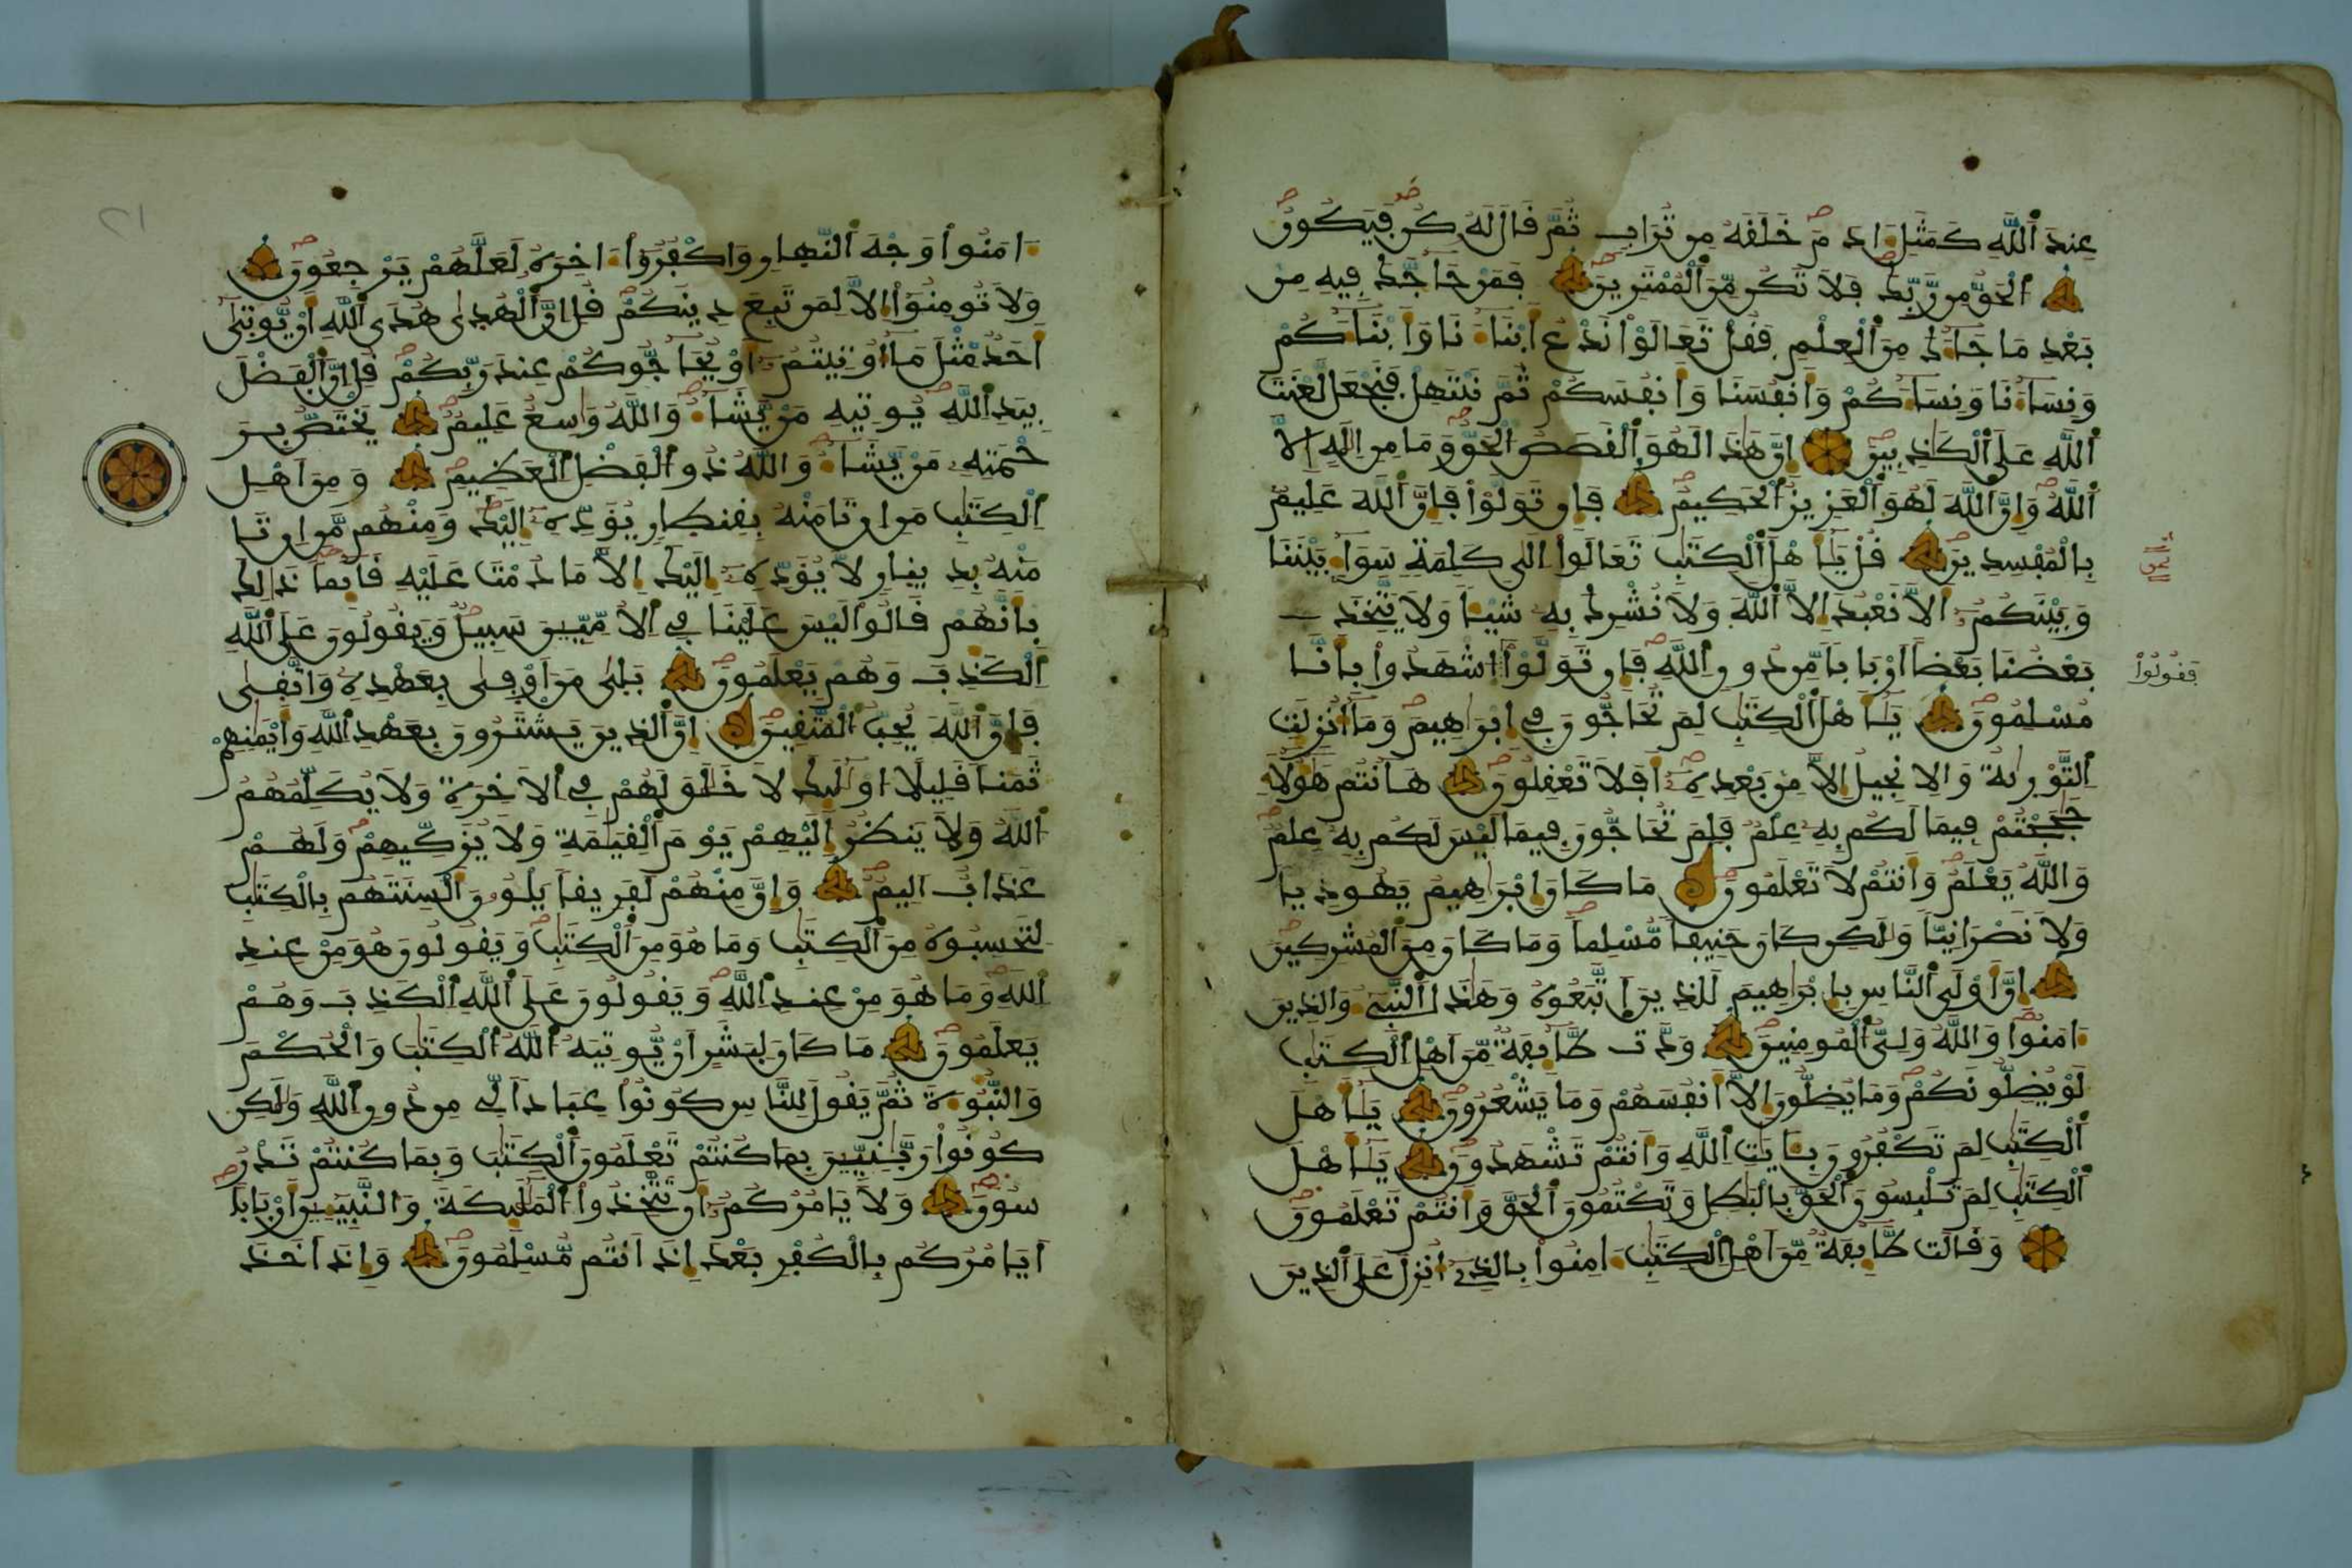 عند الله كمثل ادم خلقه من تراب ثم قال له كن فيكون
الحق من ربك فلا تكن من الممترين فمن حاجك فيه من
بعد ما جاك من العلم فقل تعالوا ندع ابنانا وابناكم
ونسانا ونساكم وانفسنا وانفسكم ثم نبتهل فنجعل لعنت
الله على الكذبين ان هذا لهو القصص الحق وما من اله الا
الله وان الله لهو العزيز الحكيم فان تولوا فان الله عليم
بالمفسدين قل ياهل الكتب تعالوا الى كلمة سوا بيننا
وبينكم الا نعبد الا الله ولا نشرك به شيا ولا يتخذ
بعضنا بعضا اربابا من دون الله فان تولوا اشهدوا بانا
فقولوا
مسلمون ياهل الكتب لم تحاجون في ابراهيم وما انزلت
التورية والانجيل الا من بعده افلا تعقلون هانتم هولا
حججتم فيما لكم به علم فلم تحاجون فيما ليس لكم به علم
والله يعلم وانتم لا تعلمون ما كان ابراهيم يهوديا
ولا نصرانيا ولكن كان حنيفا مسلما وما كان من المشركين
ان اولى الناس بابراهيم للذين اتبعوه وهذا النبي والذين
امنوا والله ولي المومنين ودت طايفة من اهل الكتب
لو يضلونكم وما يضلون الا انفسهم وما يشعرون ياهل
الكتب لم تكفرون بايت الله وانتم تشهدون ياهل
الكتب لم تلبسون الحق بالبطل وتكتمون الحق وانتم تعلمون
وقالت طايفة من اهل الكتب امنوا بالذي انزل على الذين
امنوا وجه النهار واكفروا اخره لعلهم يرجعون
ولا تومنوا الا لمن تبع دينكم قل ان الهدى هدى الله ان يوتى
احد مثل ما اوتيتم او يحاجوكم عند ربكم قل ان الفضل
بيد الله يوتيه من يشا والله واسع عليم يختص بر
حمته من يشا والله ذو الفضل العظيم ومن اهل
الكتب من ان تامنه بقنطار يوده اليك ومنهم من ان تا
منه بدينار لا يوده اليك الا ما دمت عليه قايما ذلك
بانهم قالوا ليس علينا في الامين سبيل ويقولون على الله
الكذب وهم يعلمون بلى من اوفى بعهده واتقى
فان الله يحب المتقين ان الذين يشترون بعهد الله وايمنهم
ثمنا قليلا اوليك لا خلق لهم في الاخرة ولا يكلمهم
الله ولا ينظر اليهم يوم القيمة ولا يزكيهم ولهم
عذاب اليم وان منهم لفريقا يلون السنتهم بالكتب
لتحسبوه من الكتب وما هو من الكتب ويقولون هو من عند
الله وما هو من عند الله ويقولون على الله الكذب وهم
يعلمون ما كان لبشر ان يوتيه الله الكتب والحكم
والنبوة ثم يقول للناس كونوا عبادا لي من دون الله ولكن
كونوا ربنين بما كنتم تعلمون الكتب وبما كنتم تدر
سون ولا يامركم ان تتخذوا المليكة والنبين اربابا
ايامركم بالكفر بعد اذ انتم مسلمون واذ اخذ